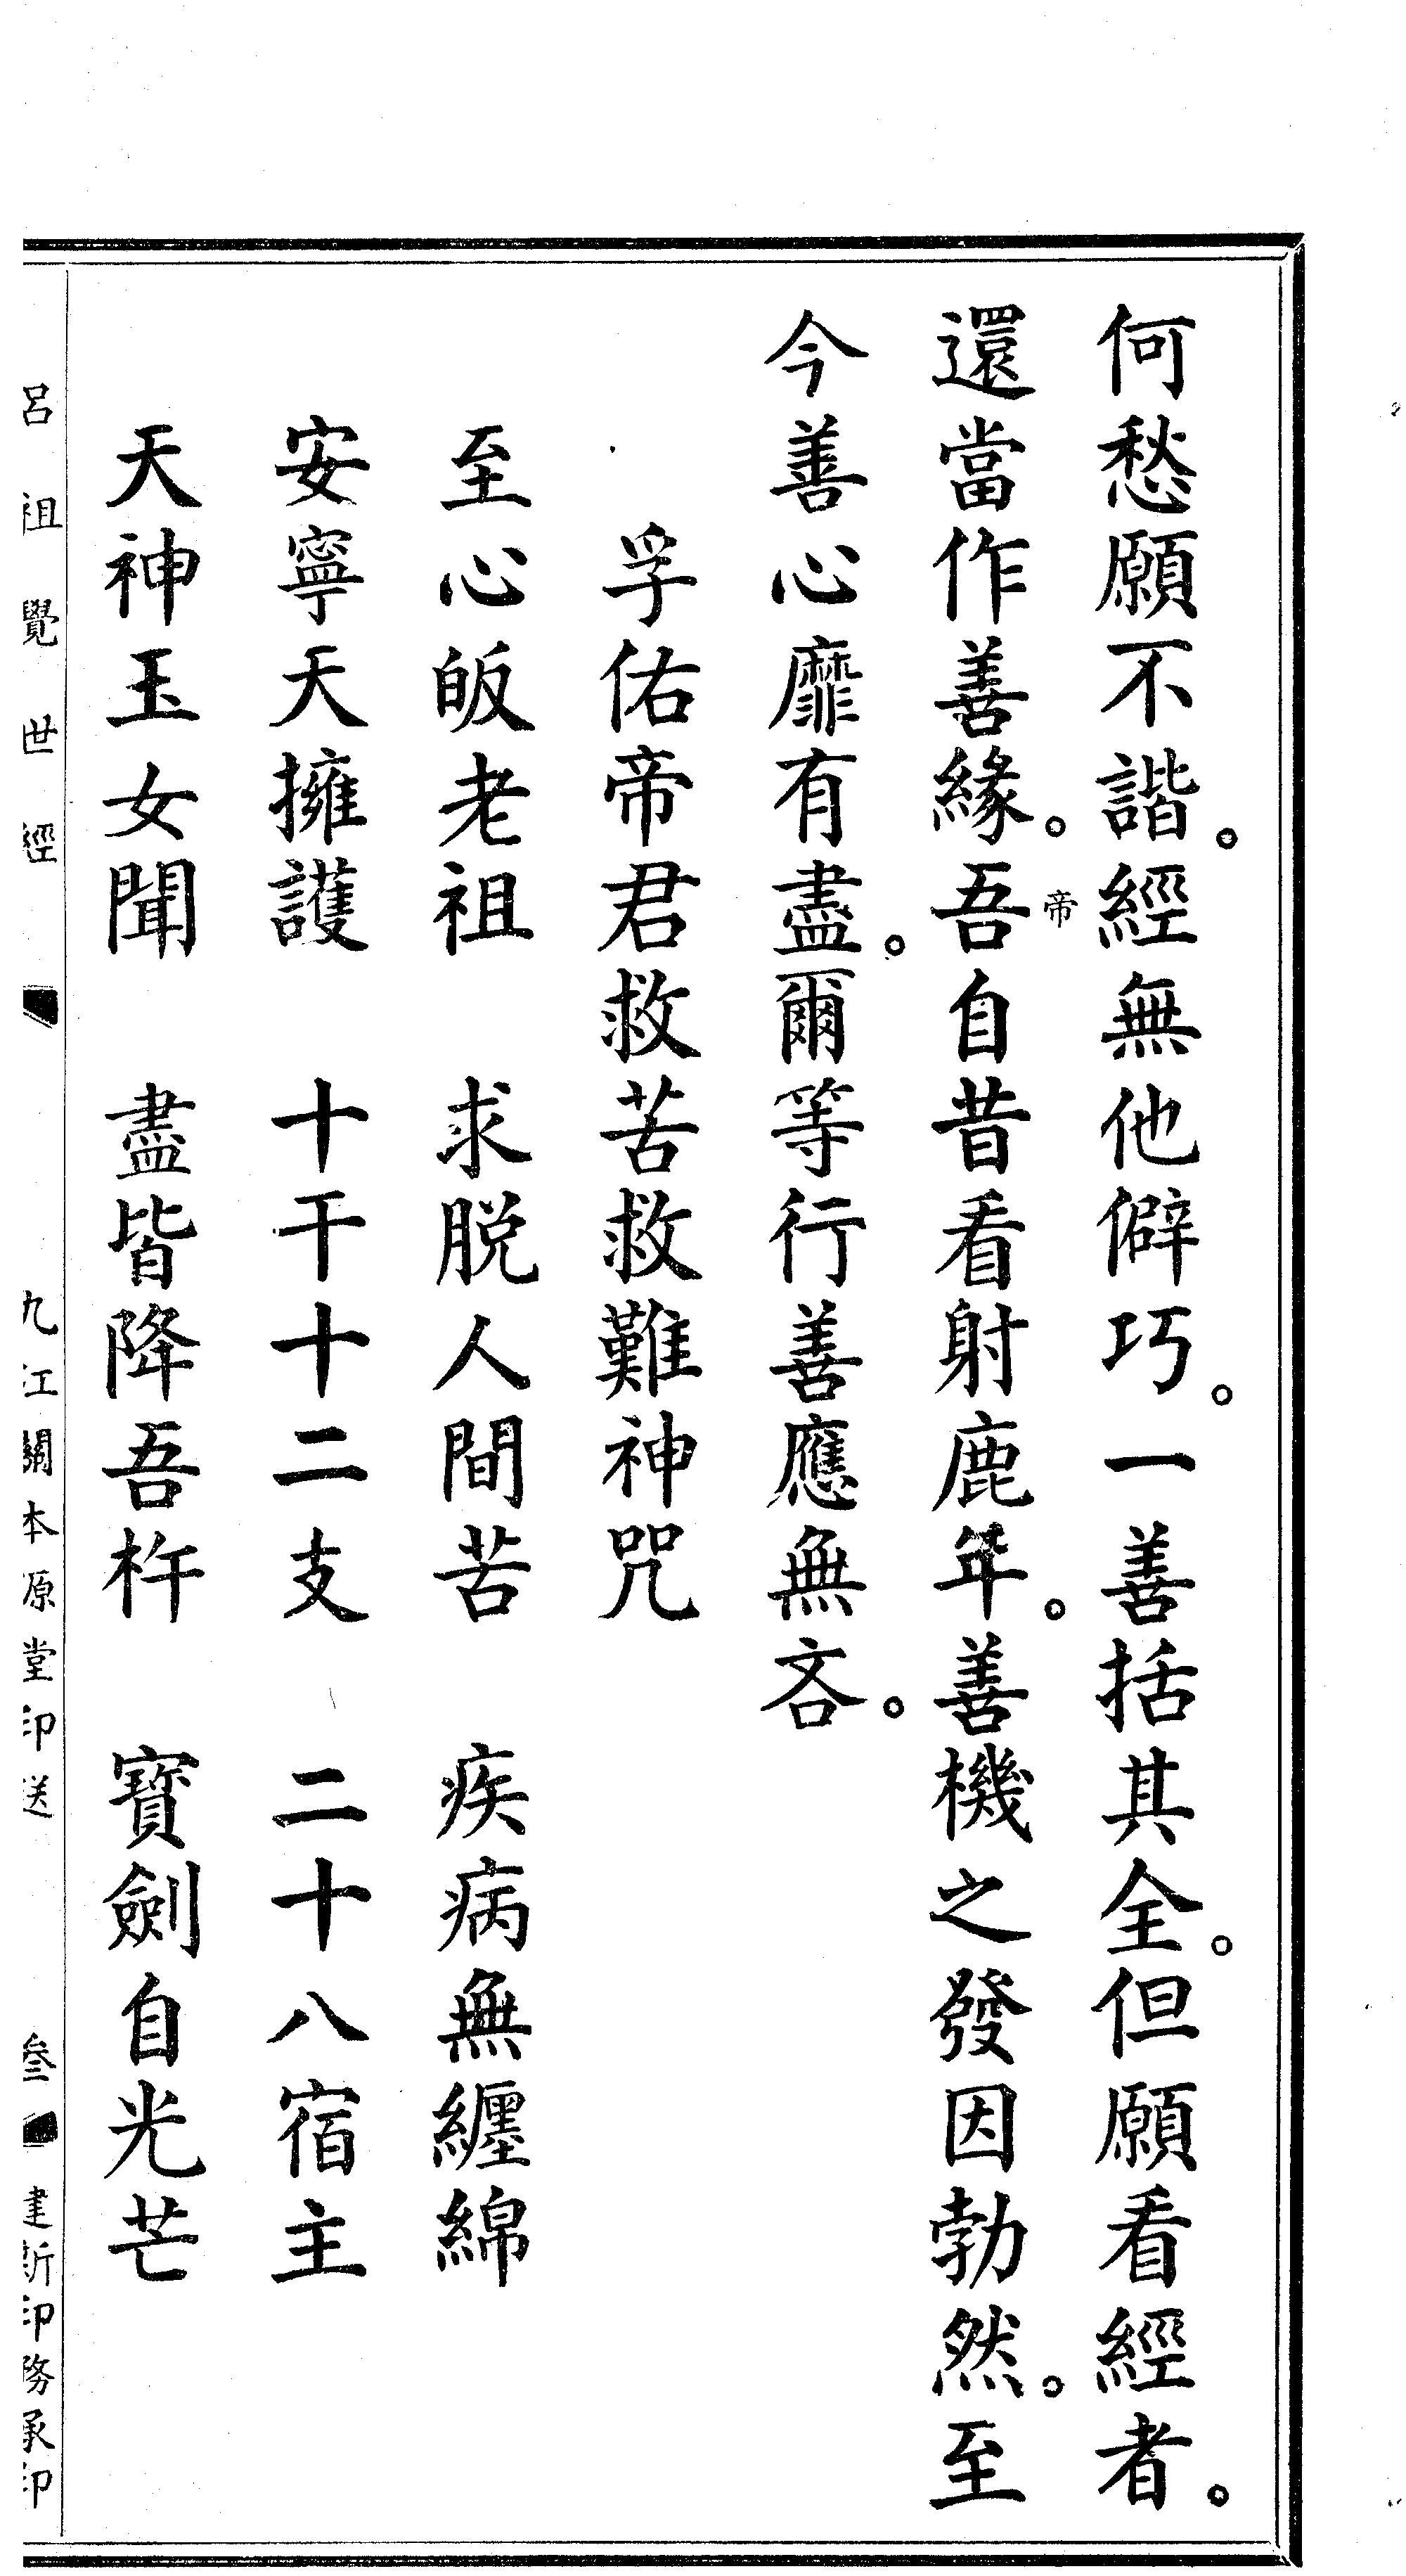 何愁願不諧。經無他僻巧。一善括其全。但願看經者。
還當作善緣。吾帝自昔看射鹿年。善機之發因勃然。至
今善心靡有盡。爾等行善應無吝。
孚佑帝君救苦救難神咒
至心皈老祖　求脱人間苦　疾病無纏綿
安寧天擁護　十干十二支　二十八宿主
天神玉女聞　盡皆降吾杵　寶劍自光芒
呂祖覺世經　九江關本原堂印送　叁　建新印務承印